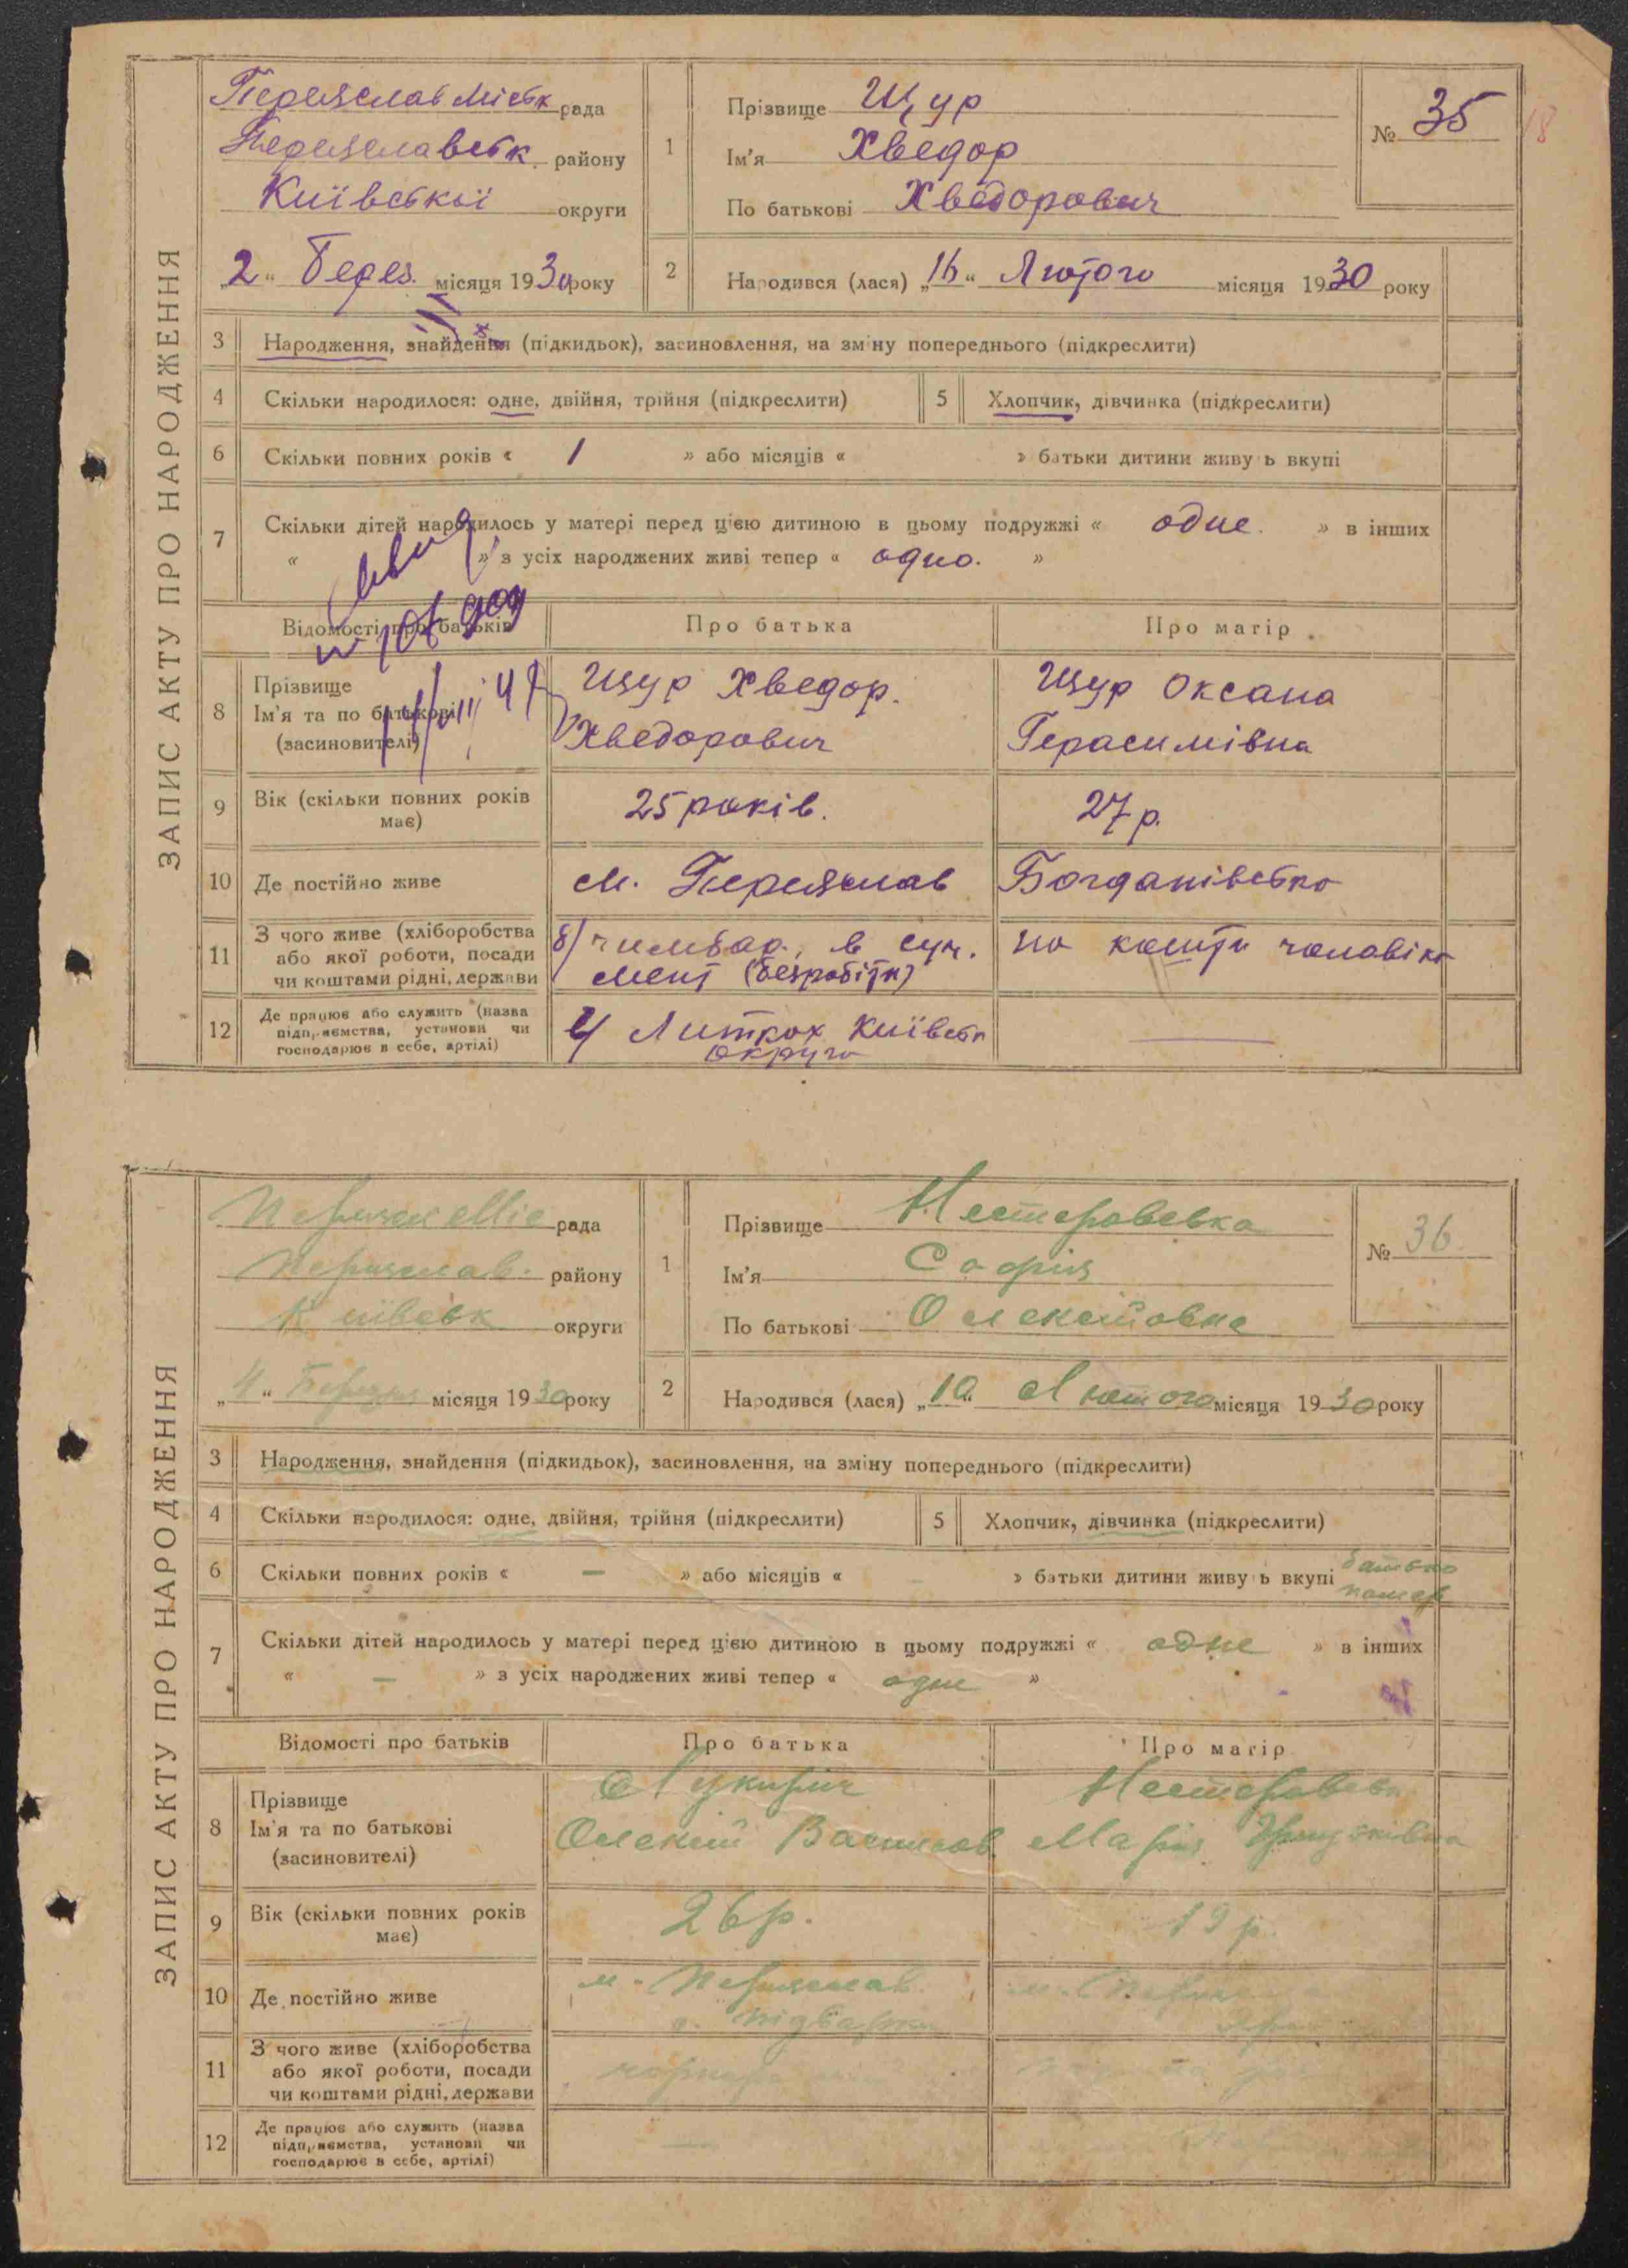 ЗАПИС АКТУ ПРО НАРОДЖЕННЯ
Переяслав Міськ рада
Переяславськ. району
Київської округи
„2“ Берез. місяця 1930 року
1
Прізвище Щур
Ім'я Хведор
По батькові Хведорович
№ 35
18
2
Народився (лася) „16“ Лютого місяця 1930 року
3 Народження, знайдення (підкидьок), засиновлення, на зміну попереднього (підкреслити)
4 Скільки народилося: одне, двійня, трійня (підкреслити)
5 Хлопчик, дівчинка (підкреслити)
6 Скільки повних років « 1 » або місяців « » батьки дитини живуть вкупі
7 Скільки дітей народилось у матері перед цією дитиною в цьому подружжі « одне. » в інших
« » з усіх народжених живі тепер « одно. »
Відомості про батьків Про батька Про матір
8 Прізвище
Ім'я та по батькові
(засиновителі)
Щур Хведор.
Хведорович
Щур Оксана
Герасимівна
9 Вік (скільки повних років має)
25 років.
27 р.
10 Де постійно живе
м. Переяслав
Богданівська
11 З чого живе (хліборобства
або якої роботи, посади
чи коштами рідні, держави
в сун.
мент (безробітн)
на кошти чоловіка
12 Де працює або служить (назва
підприємства, установи чи
господарює в себе, артілі)
Литках Київськ
округи
ЗАПИС АКТУ ПРО НАРОДЖЕННЯ
Переясл Міс рада
Переяслав. району
Київськ округи
„4“ Березня місяця 1930 року
1
Прізвище Нестеровська
Ім'я Софія
По батькові Олексіївна
№ 36.
2
Народився (лася) „10“ Лютого місяця 1930 року
3 Народження, знайдення (підкидьок), засиновлення, на зміну попереднього (підкреслити)
4 Скільки народилося: одне, двійня, трійня (підкреслити)
5 Хлопчик, дівчинка (підкреслити)
6 Скільки повних років « – » або місяців « » батьки дитини живуть вкупі батько
помер
7 Скільки дітей народилось у матері перед цією дитиною в цьому подружжі « одне » в інших
« – » з усіх народжених живі тепер « одне »
Відомості про батьків Про батька Про матір
8 Прізвище
Ім'я та по батькові
(засиновителі)
Олексій Василов.
Нестеровськ
Марія
9 Вік (скільки повних років має)
26 р.
19 р.
10 Де постійно живе
м. Переяслав.
11 З чого живе (хліборобства
або якої роботи, посади
чи коштами рідні, держави
12 Де працює або служить (назва
підприємства, установи чи
господарює в себе, артілі)